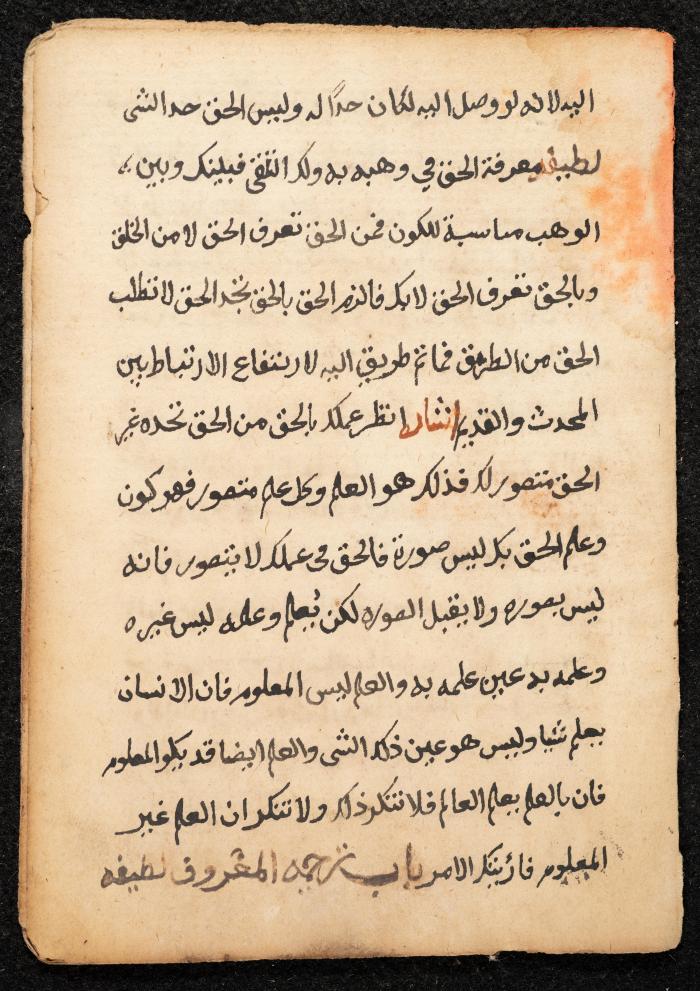 اليه لانه لو وصل اليه لكان حدًا له وليس الحق حد الشى
لطيفه معرفة الحق في وهبه به ولك انتقى فبينك وبين
الوهب مناسبة للكون فمن الحق تعرف الحق لا من الخلق
وبالحق تعرف الحق لا بك فالزم الحق بالحق تجد الحق لا تطلب
الحق من الطرق فما ثم طريق اليه لارتفاع الارتباط بين
المحدث والقديم اشارة انظر علمك بالحق من الحق تجده غير
الحق متصور لك فذلك هو العلم وكل علم متصور فهو كون
وعلم الحق بك ليس صورة فالحق فى علمك لا يتصور فانه
ليس بصوره ولا يقبل الصوره لكن يُعلم وعلمه ليس غيره
وعلمه به عين علمه به والعلم ليس المعلوم فان الانسان
يعلم شيا وليس هو عين ذلك الشى والعلم ايضا قد يكو المعلوم
فان بالعلم يعلم العالم فلا تنكر ذلك ولا تنكر ان العلم غير
المعلوم الامر باب ترجمه لطيفه